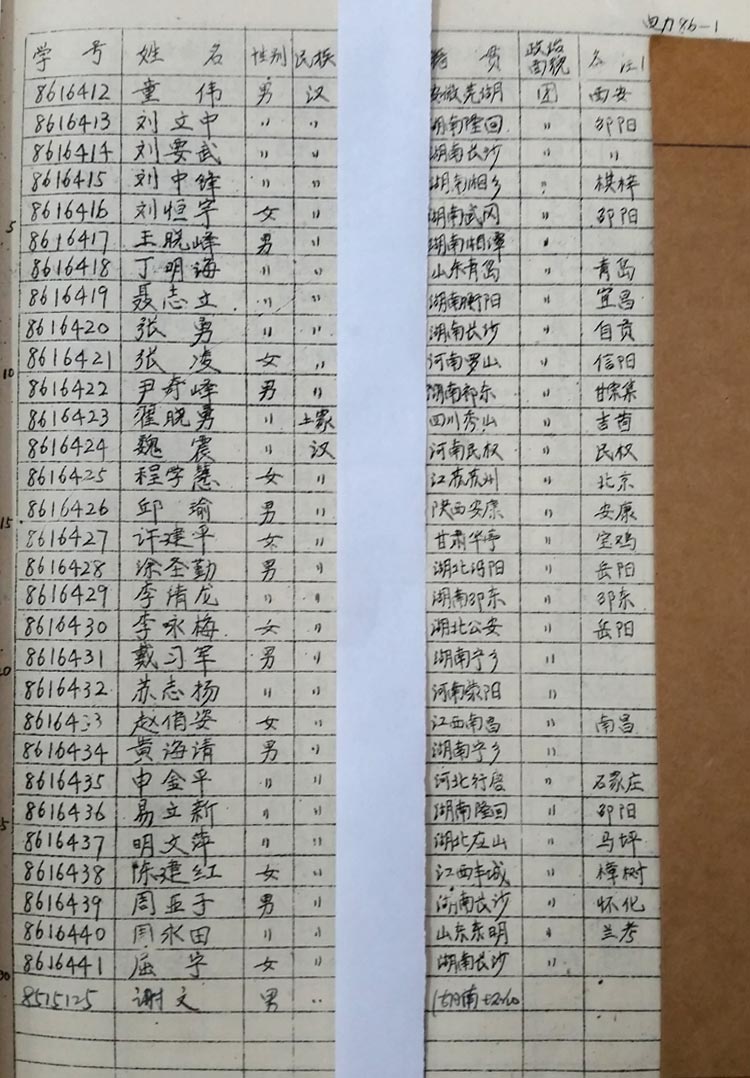 电力86-1
学 号 姓 名 性别 民族 籍 贯 政治面貌 备 注
8616412 童 伟 男 汉 安徽芜湖 团 西安
8616413 刘立中 〃 〃 湖南隆回 〃 邵阳
8616414 刘要武 〃 〃 湖南长沙 〃 〃
8616415 刘中锋 〃 〃 湖南湘乡 〃 棋梓
8616416 刘恒宇 女 〃 湖南武冈 〃 邵阳
8616417 王晓峰 男 〃 湖南湘潭 〃
8616418 丁明海 〃 〃 山东青岛 〃 青岛
8616419 聂志立 〃 〃 湖南衡阳 〃 宜昌
8616420 张 勇 〃 〃 湖南长沙 〃 自贡
8616421 张 凌 女 〃 河南罗山 〃 信阳
8616422 尹奇峰 男 〃 湖南祁东 〃
8616423 翟晚勇 〃 土家 四川秀山 〃 吉首
8616424 魏 震 汉 河南民权 〃 民权
8616425 程学慧 女 〃 江苏苏州 〃 北京
8616426 邱 瑜 男 〃 陕西安康 〃 安康
8616427 许建平 女 〃 甘肃华亭 〃 宝鸡
8616428 涂圣勤 男 〃 湖北沔阳 〃 岳阳
8616429 李清龙 〃 〃 湖南邵东 〃 邵东
8616430 李咏梅 女 〃 湖北公安 〃 岳阳
8616431 戴习军 男 〃 湖南宁乡 〃
8616432 苏志扬 〃 〃 河南荥阳 〃
8616433 赵俏姿 女 〃 江西南昌 〃 南昌
8616434 黄海清 男 〃 湖南宁乡 〃
8616435 申金平 〃 〃 河北行唐 〃 石家庄
8616436 易立新 〃 〃 湖南隆回 〃 邵阳
8616437 明文萍 〃 〃 湖北 〃 马坪
8616438 陈建红 女 〃 江西丰城 〃 樟树
8616439 周亚子 男 〃 湖南长沙 〃 怀化
8616440 闫永田 〃 〃 山东东明 〃 兰考
8616441 屈 宇 女 〃 湖南长沙 〃
8515125 谢文 男 〃 湖南